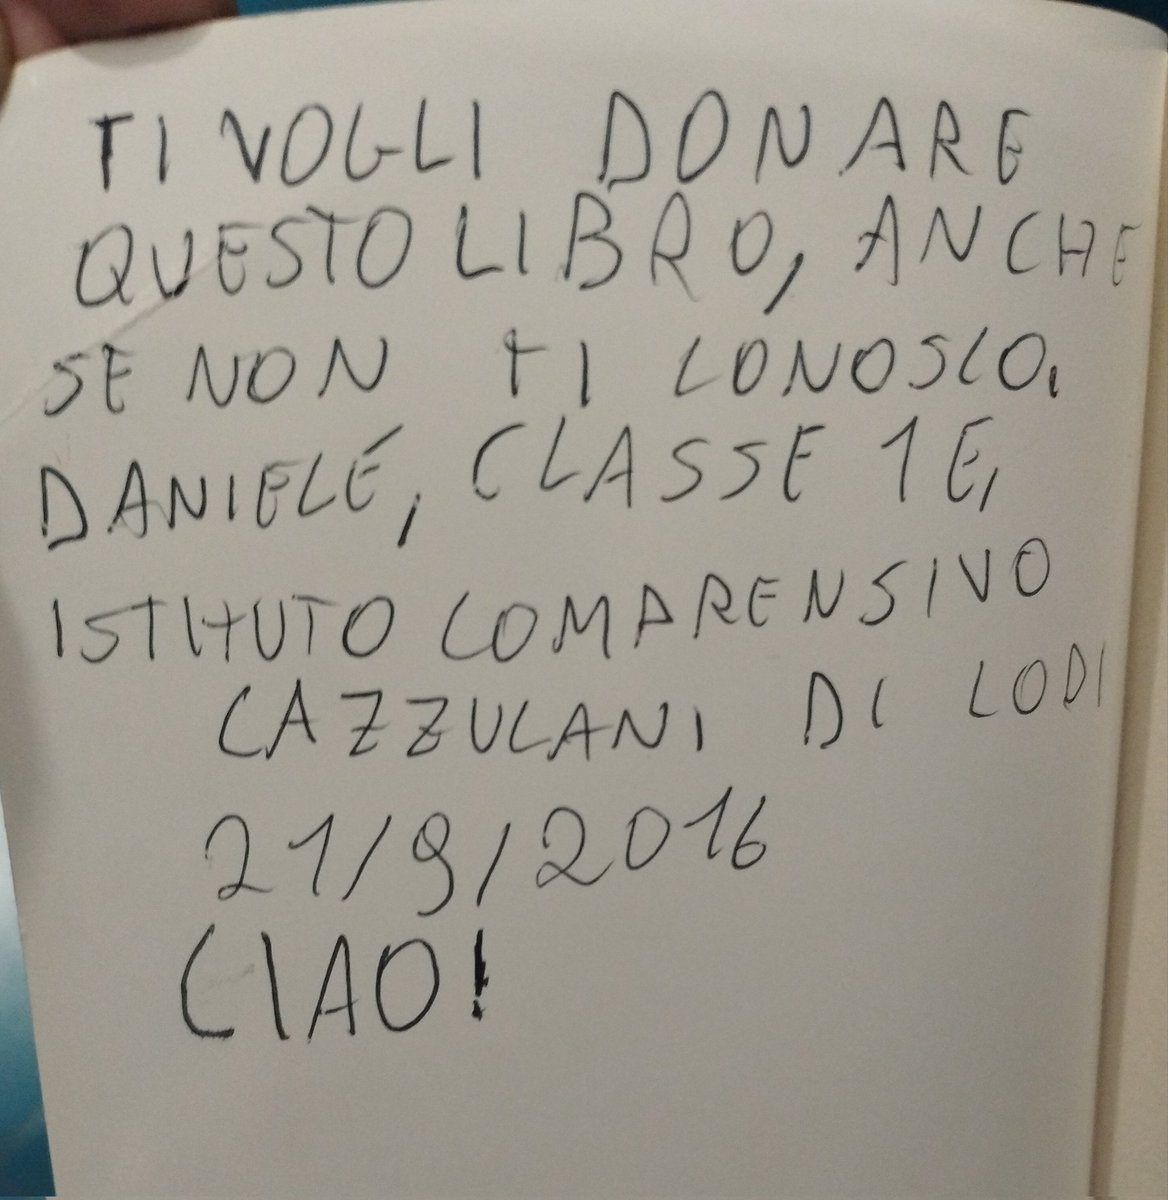 TI VOGLI DONARE
QUESTO LIBRO, ANCHE
SE NON TI CONOSCO.
DANIELE, CLASSE 1E,
ISTITUTO COMPRENSIVO
CAZZULANI DI LODI
21/9/2016
CIAO!